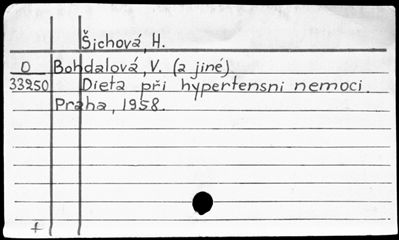 Šichová, H.
O Bohdalová, V. (a jiné)
33250 Dieta při hypertensni nemoci.
Praha, 1958.